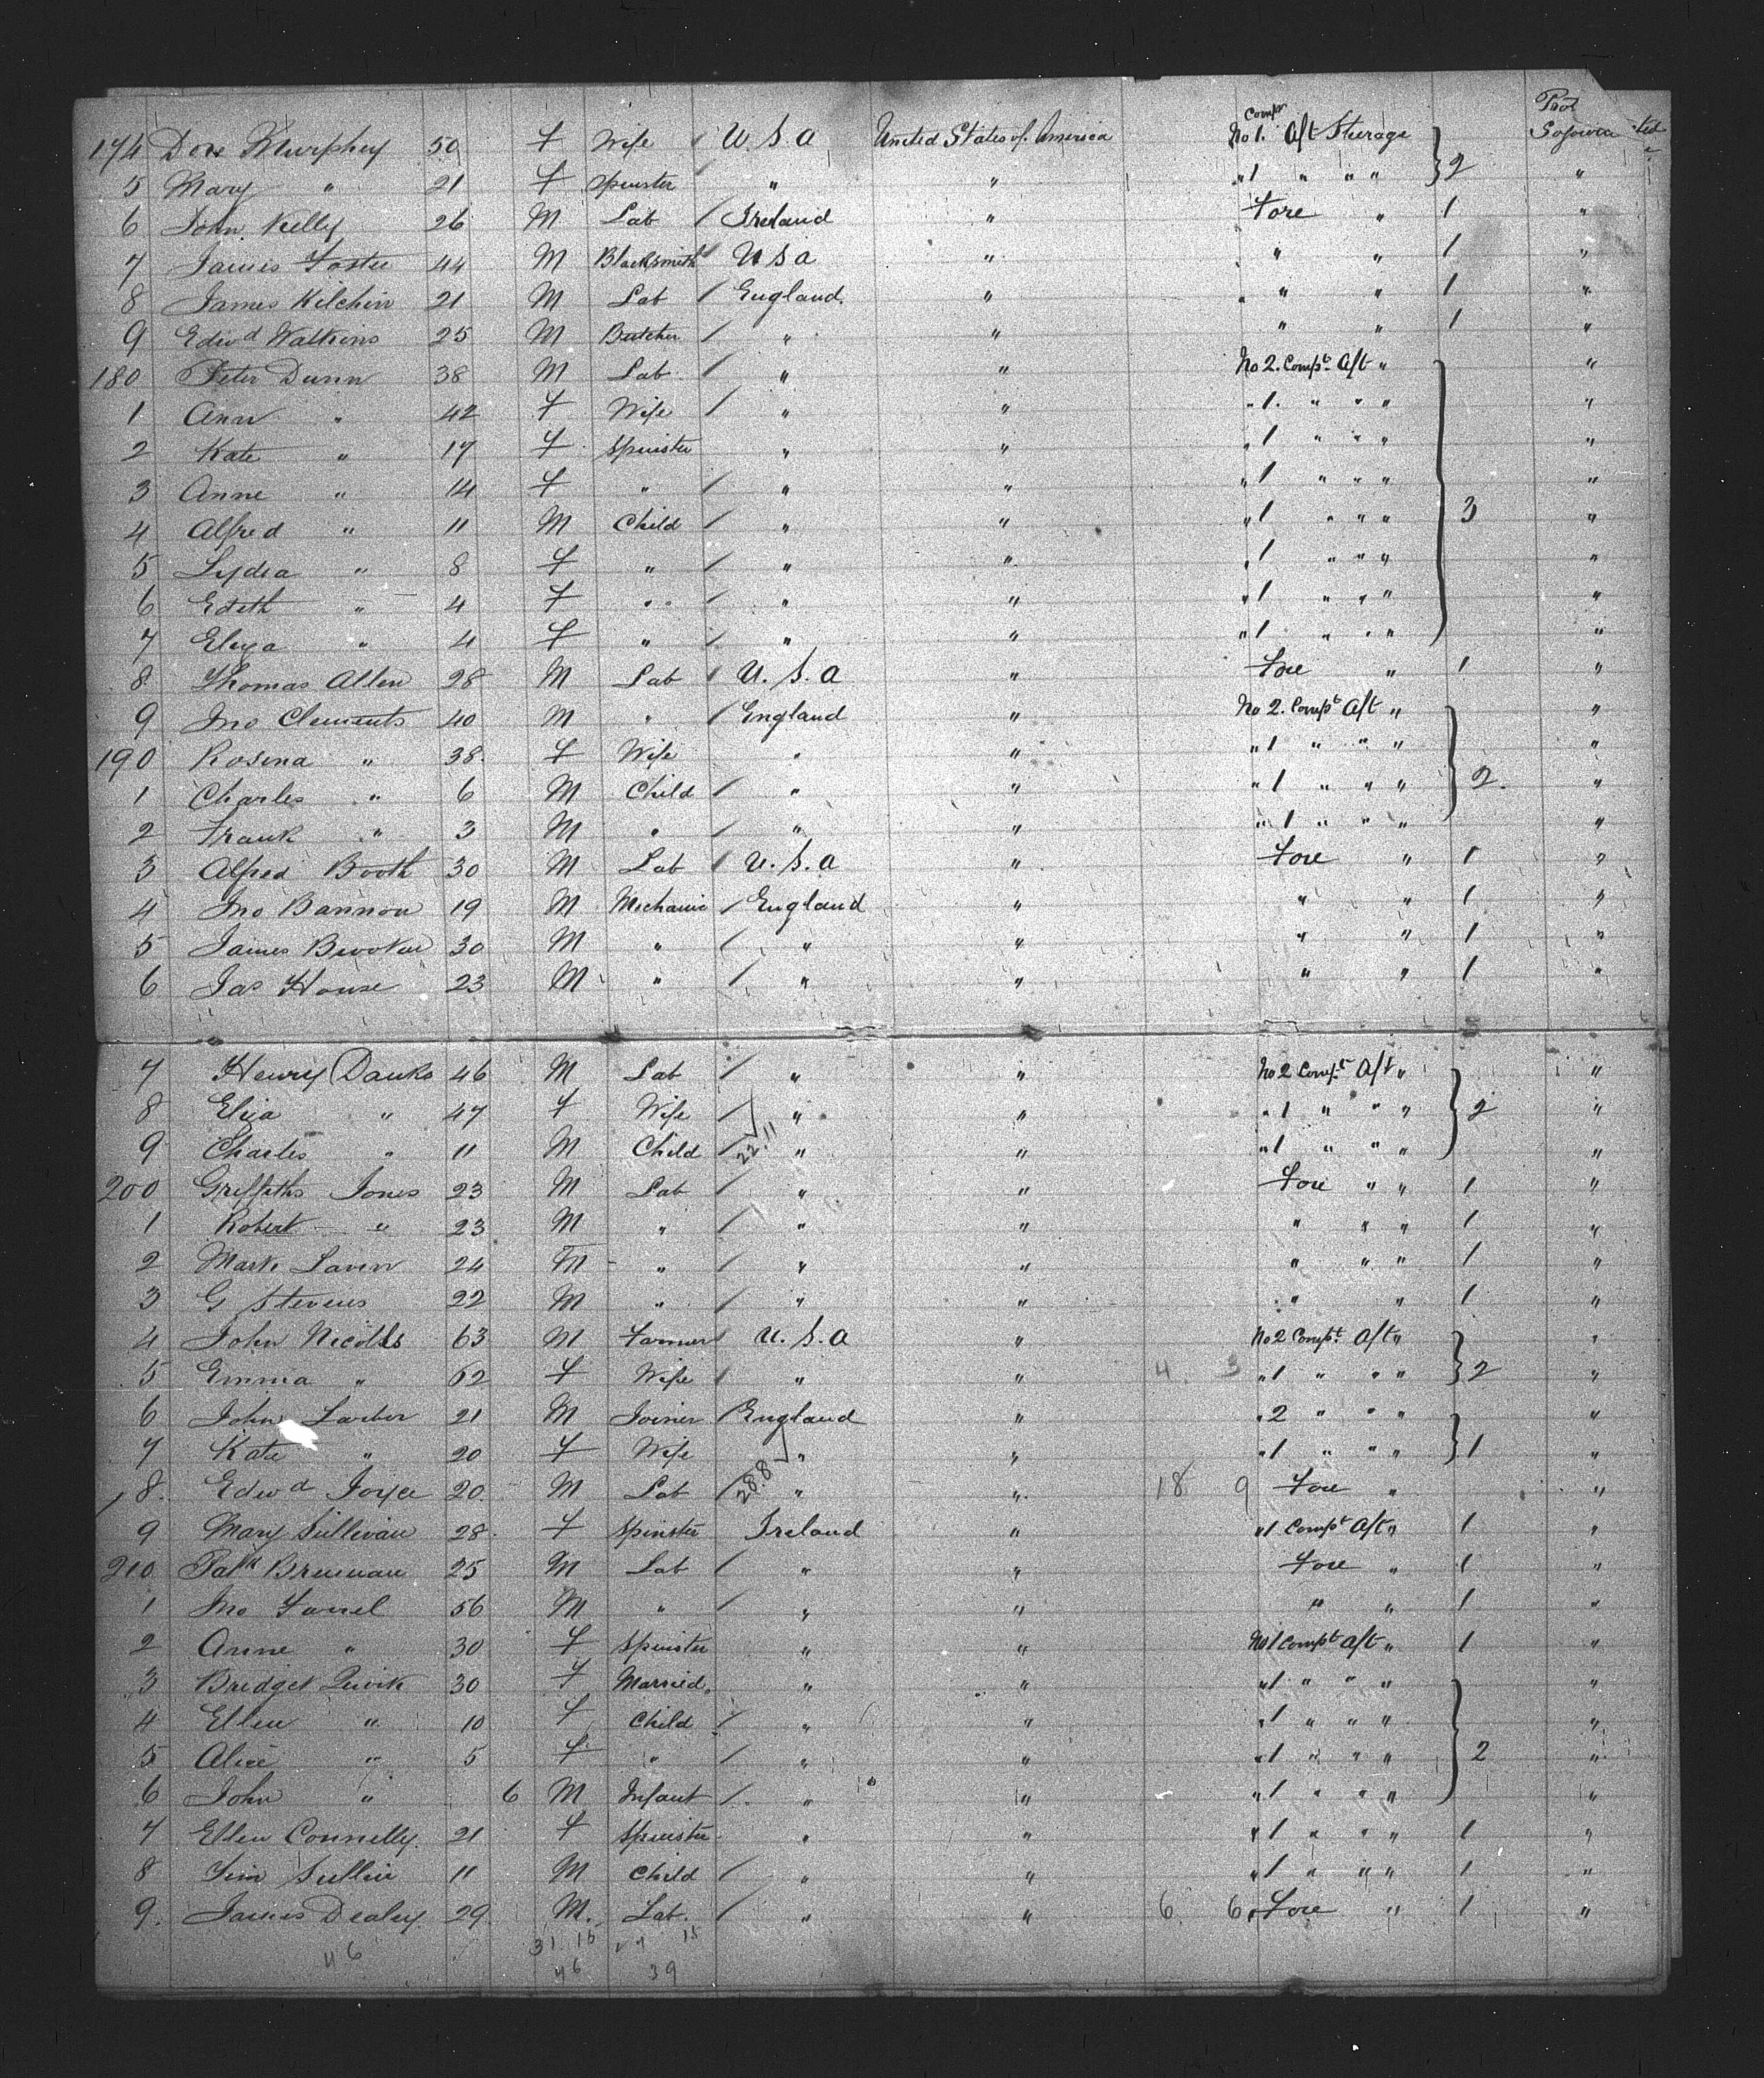 Prot
174 Dox Murphey 50 f Wife / U.S.a United States of America Compt No 1. Aft Sterage } 2 Sojourn
5 Mary " 21 f Spinster " " " 1 " " " "
6 John Kelly 26 M Lab / Ireland " Fore " 1 "
7 James Foster 44 M Blacksmith / U S a " " " 1 "
8 James Kilchin 21 M Lab / England. " " " 1 "
9 Edwd Watkins 25 M Butcher / " " " " 1 "
180 Peter Dunn 38 M Lab / " " No 2. Compt. Aft " "
1 Ann " 42 f Wife / " " " 1. " " " "
2 Kate " 17 f Spinster " " " 1 " " " "
3 Anne " 14 f " / " " " 1 " " " "
4 Alfred " 11 M Child / " " " 1 " " " } 3 "
5 Lydia " 8 f " / " " " 1 " " " "
6 Edith " 4 f " / " " " 1 " " " "
7 Eliza " 4 f " / " " " 1 " " " "
8 Thomas Allen 28 M Lab / U.S.a " Fore " 1 "
9 Jno Clements 40 M " / England " No 2. Compt Aft " "
190 Rosina " 38. f Wife " " " 1 " " " "
1 Charles " 6 M Child / " " " 1 " " " } 2. "
2 Frank " 3 M " / " " " 1 " " " "
3 Alfred Booth 30 M Lab / U.S.a " Fore " 1 "
4 Jno Bannon 19 M Mechanic / England " " " 1 "
5 James Brooker 30 M " / " " " " 1 "
6 Jas House 23 M " / " " " " 1 "
7 Henry Danks 46 M Lab / " " No 2 Compt Aft " "
8 Eliza " 47 f Wife / " " " 1 " " " } 2 "
9 Charles " 11 M Child / 22.11 " " " 1 " " " "
200 Griffiths Jones 23 M Lab / " " Fore " " 1 "
1 Robert " 23 M " / " " " " " 1 "
2 Mark Lavin 24 M " / " " " " " 1 "
3 G Stevens 22 M " / " " " " 1 "
4 John Nicolls 63 M Farmer / U.S.a " No 2 Compt. Aft " "
5 Emma " 62 f Wife / " " 4. 3 " 1 " " " } 2 "
6 John Larter 21 M Joiner / England " " 2 " " " "
7 Kate " 20 f Wife " " " 1 " " " } 1 "
8. Edwd Joyce 20. M Lab / 28.8 " " 18 9 Fore " "
9 Mary Sullivan 28 f Spinster Ireland " " 1 Compt Aft " 1 "
210 Patk Brennan 25 M Lab / " " Fore " 1 "
1 Jno Farrel 56 M " / " " " " 1 "
2 Anne " 30 f Spinster " " No 1 Compt Aft " 1 "
3 Bridget Quirk 30 f Married. " " " 1 " " " "
4 Ellen " 10 f Child / " " " 1 " " " "
5 Alice " 5 f " / " " " 1 " " " } 2 "
6 John " 6 M Infant / " " " 1 " " " "
7 Ellen Connelly. 21 f Spinster " " " 1 " " " 1 "
8 Tim Sullivn 11 M Child / " " " 1 " " " 1 "
9. James Dealey. 29 M. Lab. / " " 6 6 Fore " 1 "
46 31 15 15
46 39